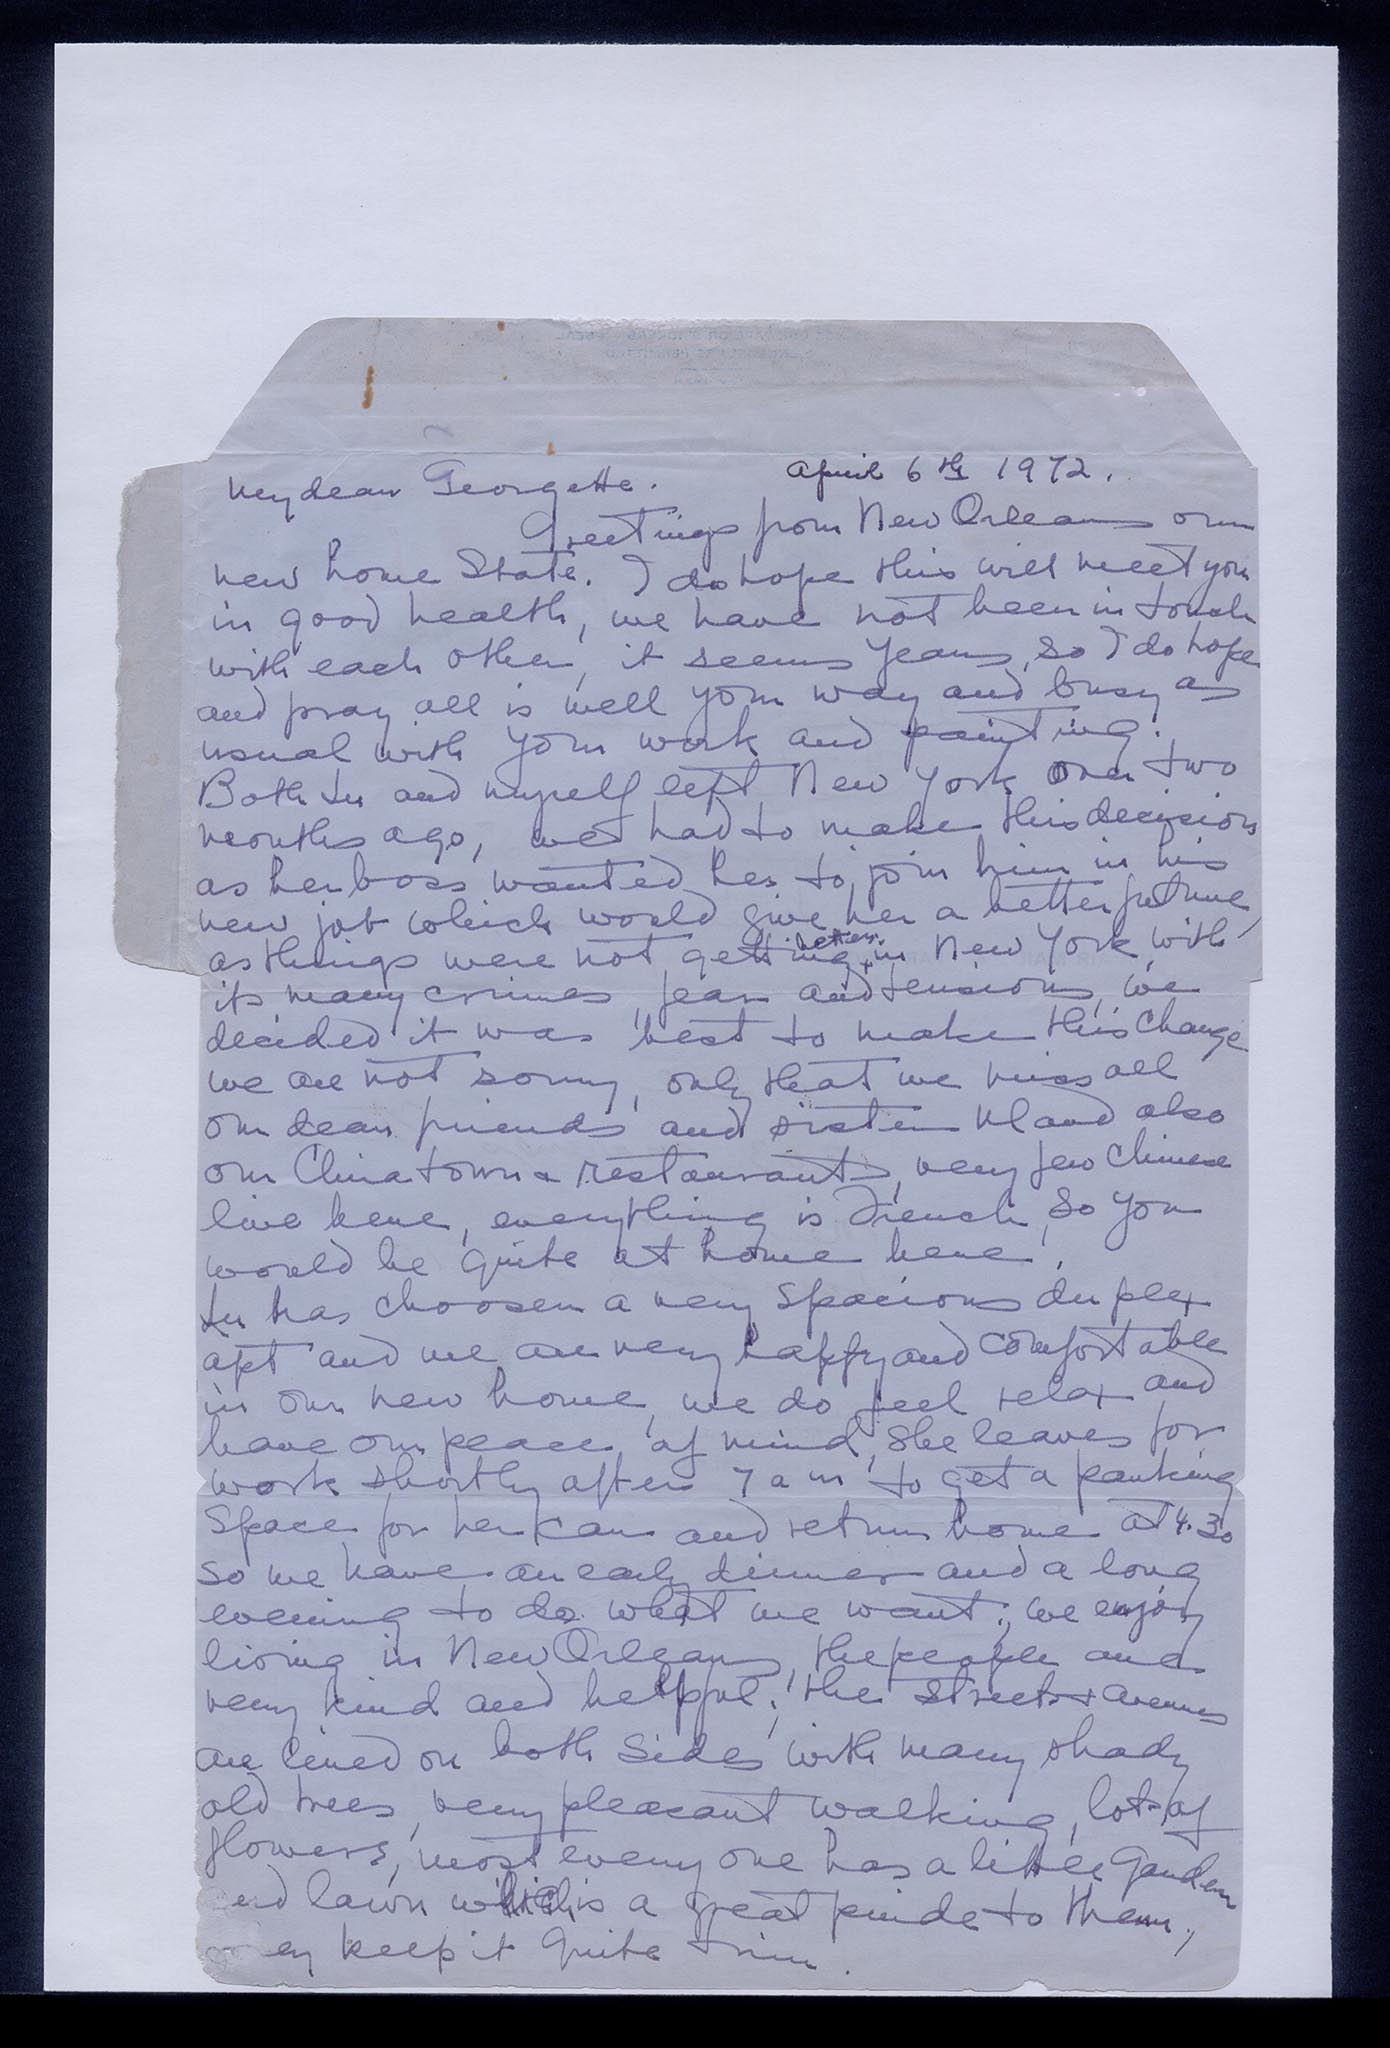 April 6th 1972.
My dear Georgette.
Greetings from New Orleans our
new home State. I do hope this will meet you
in good health, we have not been in touch
with each other, it seems years, so I do hope
and pray all is well your way and busy as
usual with your work and painting.
Both Lu and myself left New York over two
months ago, we had to make this decision
as her boss wanted her to join him in his
new job which would give her a better future,
as things were not getting better in New York with
its many crimes, fear and tensions, we
decided it was best to make this change
we are not sorry, only that we miss all
our dear friends and sister and also
our Chinatown & restaurants, very few Chinese
live here, everything is French, so you
would be quite at home here.
Lu has choosen a very spacious duplex
apt and we are very happy and comfortable
in our new home, we do feel relax and
have our peace of mind, she leaves for
work shortly after 7 am to get a parking
space for her car and return home at 4.30
so we have an early dinner and a long
evening to do what we want; we enjoy
living in New Orleans, the people are
very kind and helpful; the streets & avenues
are lined on both sides with many shady
old trees, very pleasant walking, lots of
flowers, most every one has a little garden
and lawn which is a great pride to them,
keep it quite trim.